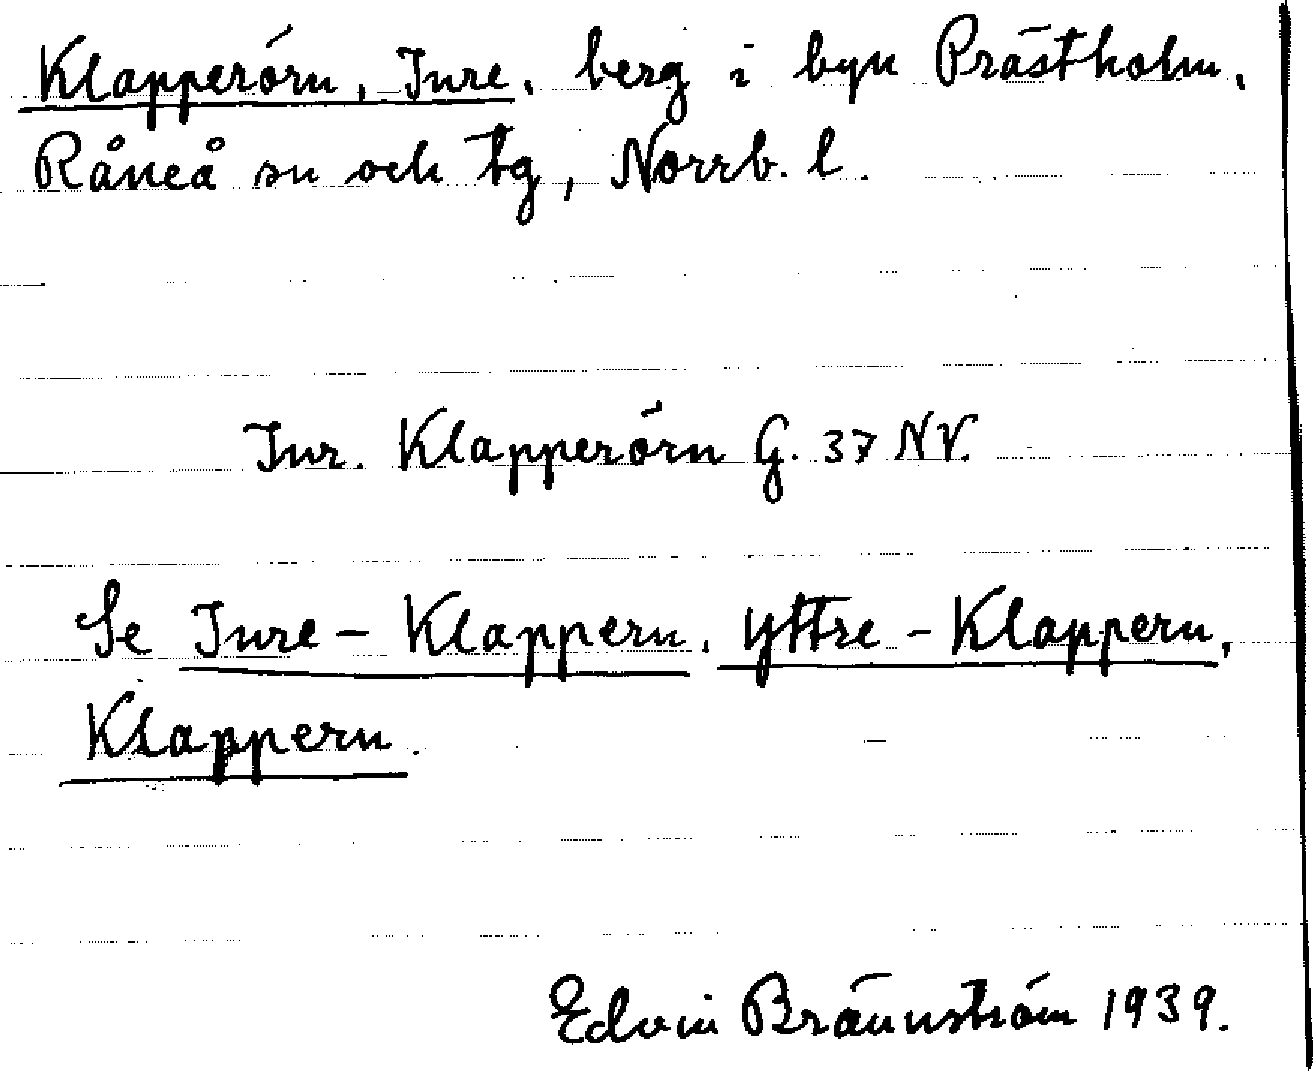 Klapperörn, Inre, berg i byn Prästholm,
Råneå sn och tg, Norrb. l.
Inr. Klapperörn G. 37 NV.
Se Inre-Klappern, Yttre-Klappern,
Klappern.
Edvin Brännström 1939.